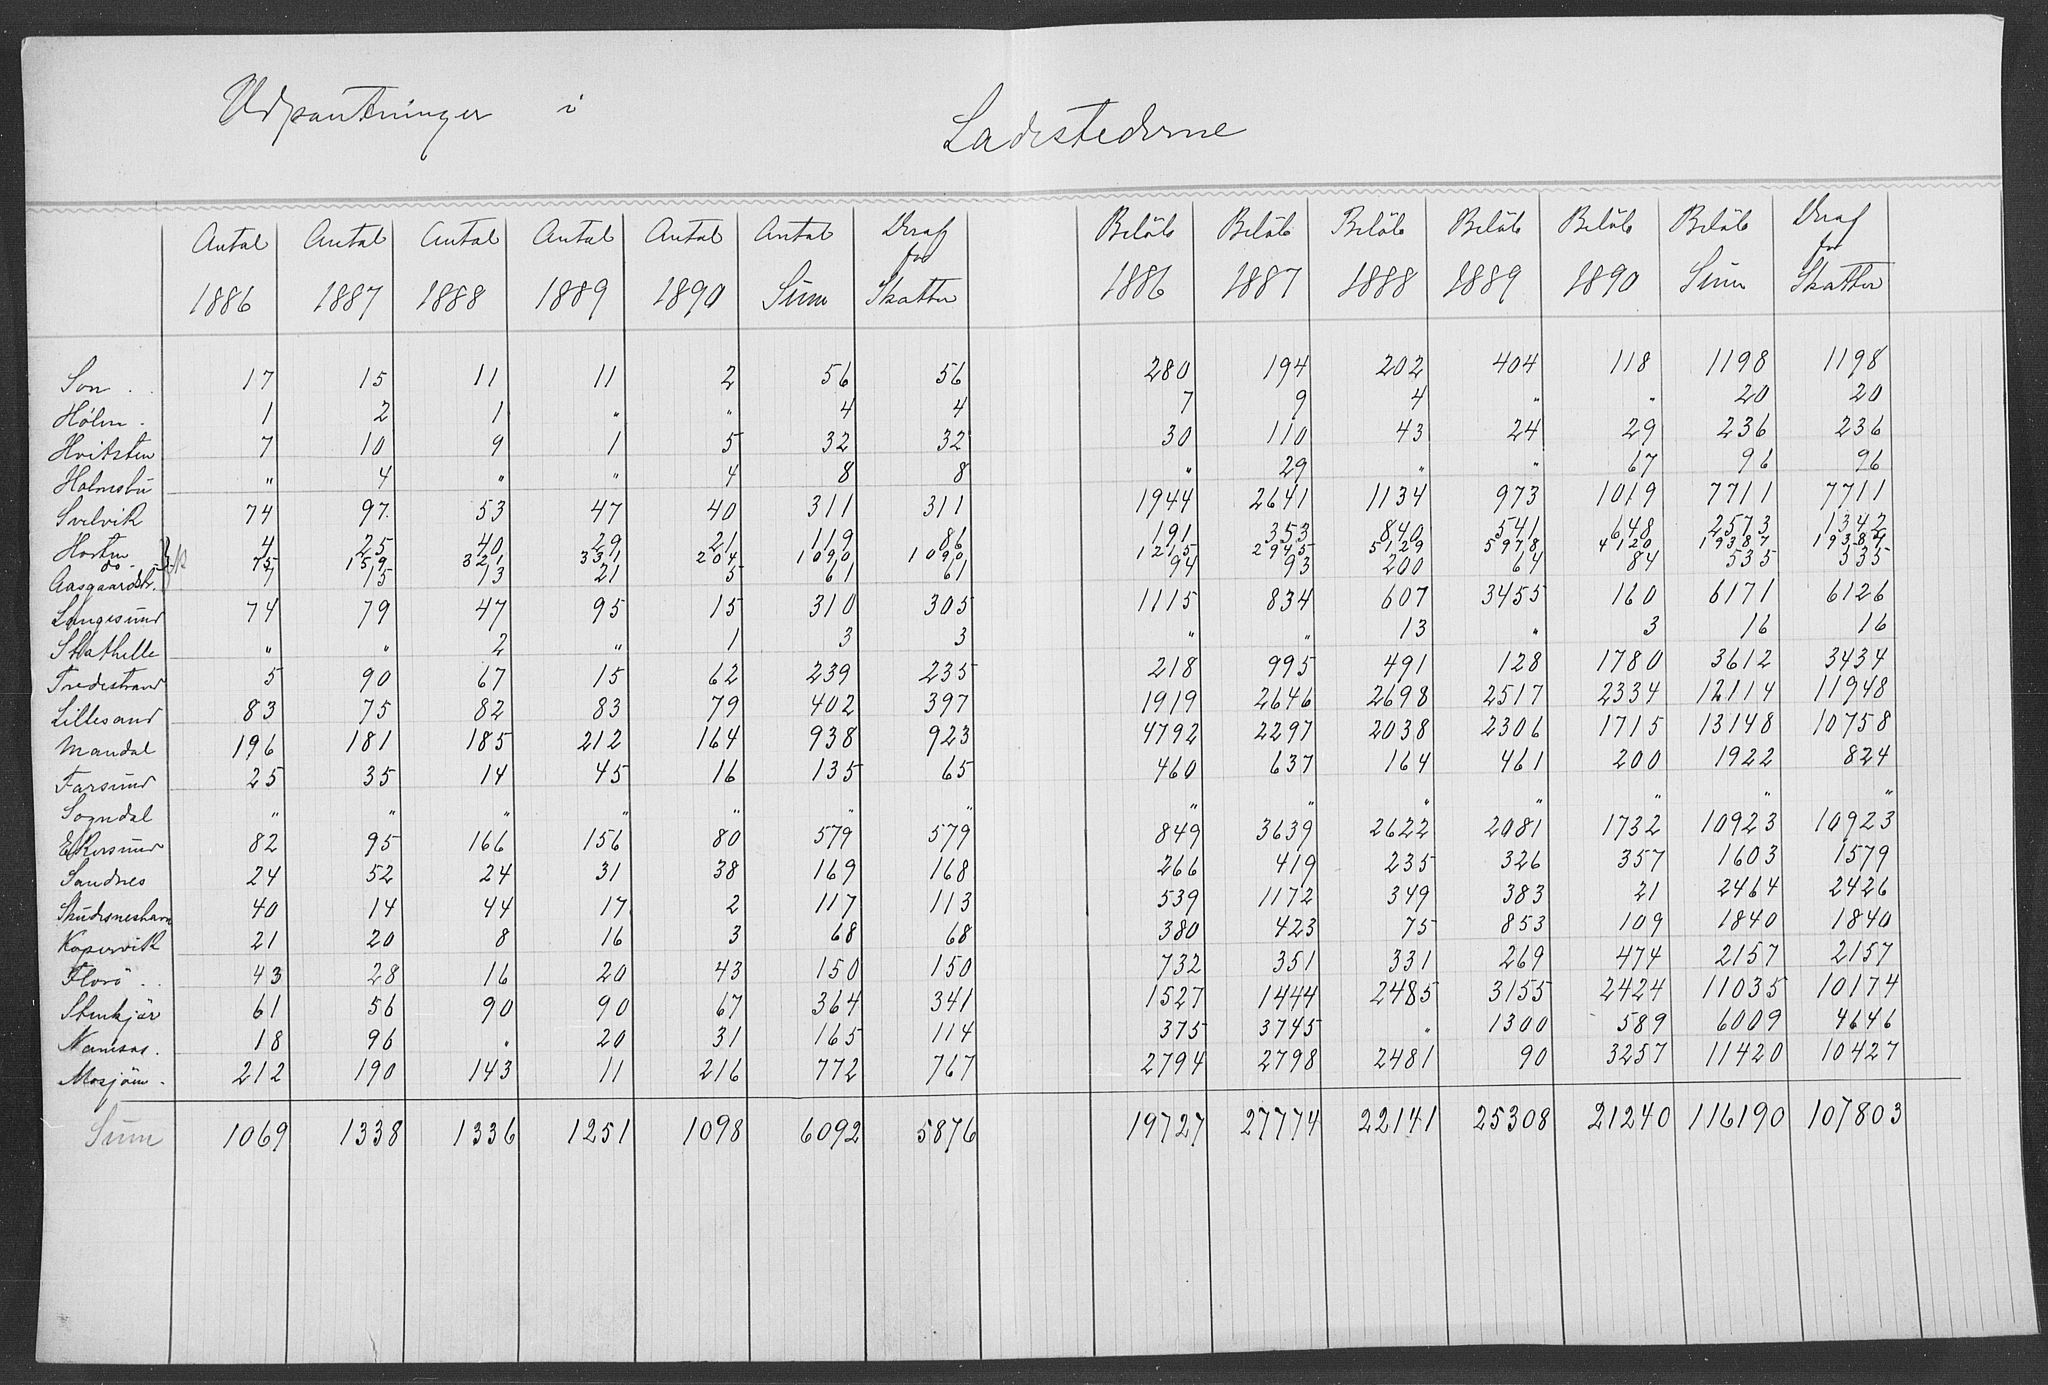 Udpantninger i Ladestederne
Antal Antal Antal Antal Antal Antal Deraf Beløb Beløb Beløb Beløb Beløb Beløb Deraf
for for
1886 1887 1888 1889 1890 Sum Skatter 1886 1887 1888 1889 1890 Sum Skatter
Son . . 17 15 11 11 2 56 56 280 194 202 404 118 1198 1198
Hølen . 1 2 1 " " 4 4 7 9 4 " " 20 20
Hvitsten 7 10 9 1 5 32 32 30 110 43 24 29 236 236
Holmsbu " 4 " " 4 8 8 " 29 " " 67 96 96
Svelvik 74 97 53 47 40 311 311 1944 2641 1134 973 1019 7711 7711
Horten 4 25 40 29 21 119 86 191 353 840 541 648 2573 1342
do. 75 159 321 331 204 1090 1090 1215 2945 5129 5978 4120 19387 19387
Aasgaardstr. 7 15 13 21 5 61 61 94 93 200 64 84 535 535
Langesund 74 79 47 95 15 310 305 1115 834 607 3455 160 6171 6126
Stathelle " " 2 " 1 3 3 " " 13 " 3 16 16
Tvedestrand 5 90 67 15 62 239 235 218 995 491 128 1780 3612 3434
Lillesand 83 75 82 83 79 402 397 1919 2646 2698 2517 2334 12114 11948
Mandal 196 181 185 212 164 938 923 4792 2297 2038 2306 1715 13148 10758
Farsund 25 35 14 45 16 135 65 460 637 164 461 200 1922 824
Sogndal " " " " " " " " " " " " " "
Ekersund 82 95 166 156 80 579 579 849 3639 2622 2081 1732 10923 10923
Sandnes 24 52 24 31 38 169 168 266 419 235 326 357 1603 1579
Skudesneshavn 40 14 44 17 2 117 113 539 1172 349 383 21 2464 2426
Kopervik 21 20 8 16 3 68 68 380 423 75 853 109 1840 1840
Florö . . 43 28 16 20 43 150 150 732 351 331 269 474 2157 2157
Stenkjær 61 56 90 90 67 364 341 1527 1444 2485 3155 2424 11035 10174
Namsos . 18 96 " 20 31 165 114 375 3745 " 1300 589 6009 4646
Mosjöen . 212 190 143 11 216 772 767 2794 2798 2481 90 3257 11420 10427
Sum 1069 1338 1336 1251 1098 6092 5876 19727 27774 22141 25308 21240 116190 107803